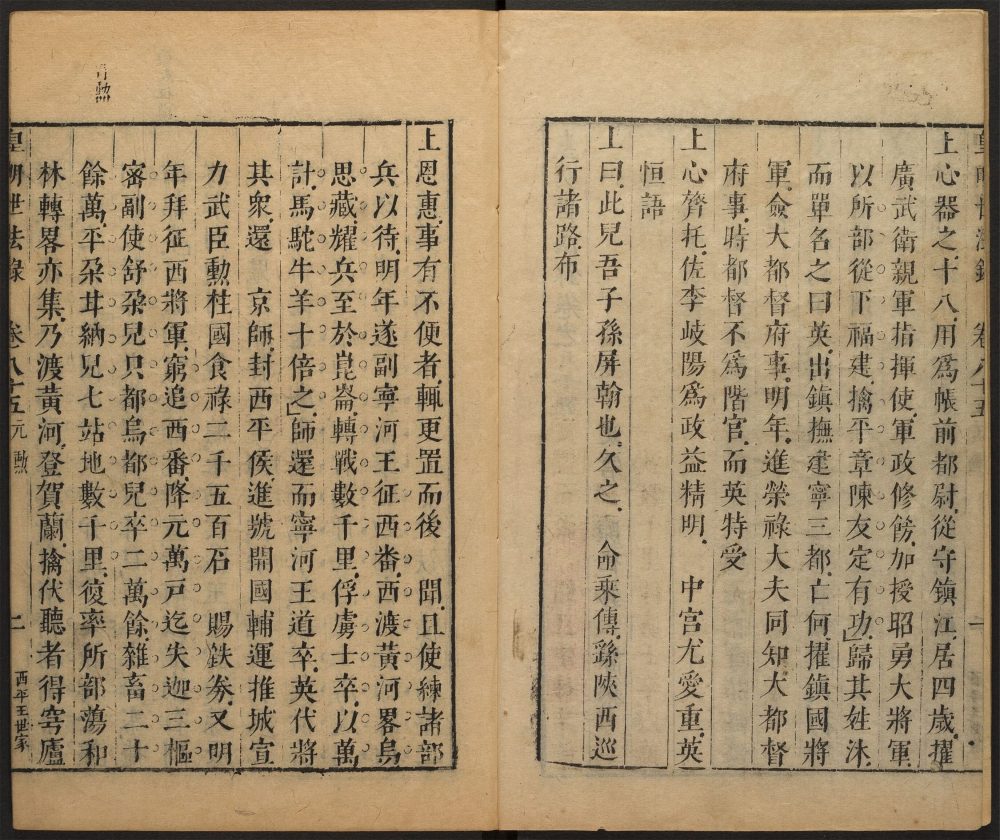 上心器之十八用爲帳前都尉從守鎮江居四歲擢
廣武衛親軍指揮使軍政修飭加授昭勇大將軍
以所部從下福建擒平章陳友定有功歸其姓沐
而單名之曰英出鎮撫建寧三都亡何擢鎮國將
軍僉大都督府事明年進榮祿大夫同知大都督
府事時都督不爲階官而英特受
上心膂托佐李岐陽爲政益精明 中宫尤愛重英
恒語
上曰此兒吾子孫屏翰也久之 命乘傳繇陝西巡
行諸路布
上恩惠事有不便者輒更置而後 聞且使練諸部
兵以待明年遂副寧河王征西番西渡黃河畧烏
思藏耀兵至於崑崙轉戰數千里俘虜士卒以萬
計馬駝牛羊十倍之師還而寧河王道卒英代將
其衆還 京師封西平侯進號開國輔運推城宣
力武臣勳柱國食祿二千五百石 賜鉄券又明
年拜征西將軍窮追西番降元萬戸迄失迦三樞
密副使舒朶兒只都烏都兒卒二萬餘雜畜二十
餘萬平朶甘納兒七站地數千里復率所部蕩和
林轉畧亦集乃渡黃河登賀蘭擒伏聽者得穹廬
皇明世法錄 卷八十五 元勲 二 西平王世家